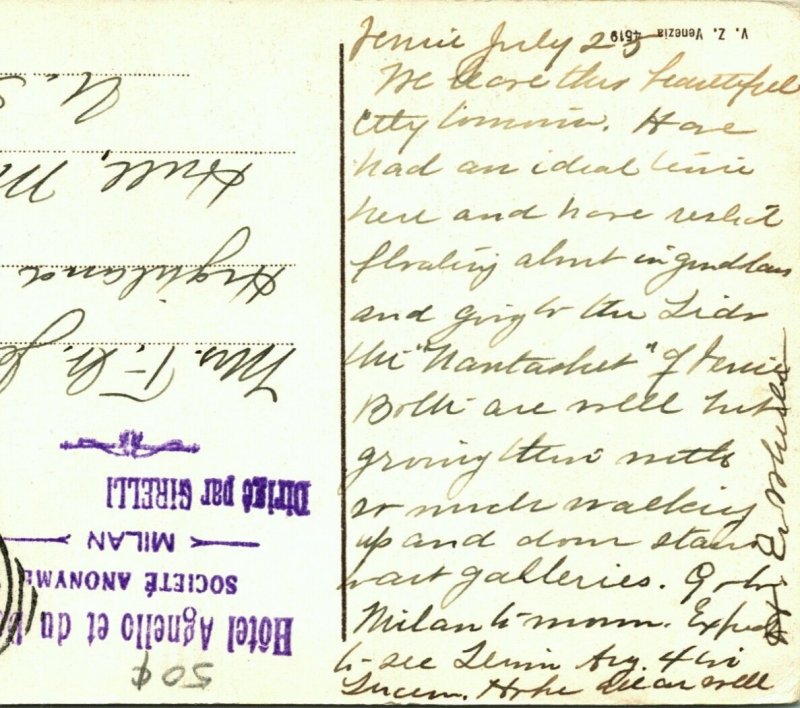 Venice July 25
We leave this beautiful
City tomorrow. Have
had an ideal time
here and have
floating about in gondolas
and going to the Lido
the "Nantasket" of Venice
Both are well but
growing thin with
so much walking
up and down stairs
vast galleries. Go to
Milan to-morrow. Expect
to see Aug. 4th
Lucern. Hope all are well
V. Z. Venezia 4519
Mrs. T. 
Highland
Hull, M
U. S
Hôtel Agnello et du
SOCIETÉ ANONYME
MILAN
Dirigé par GIRELLI
50¢